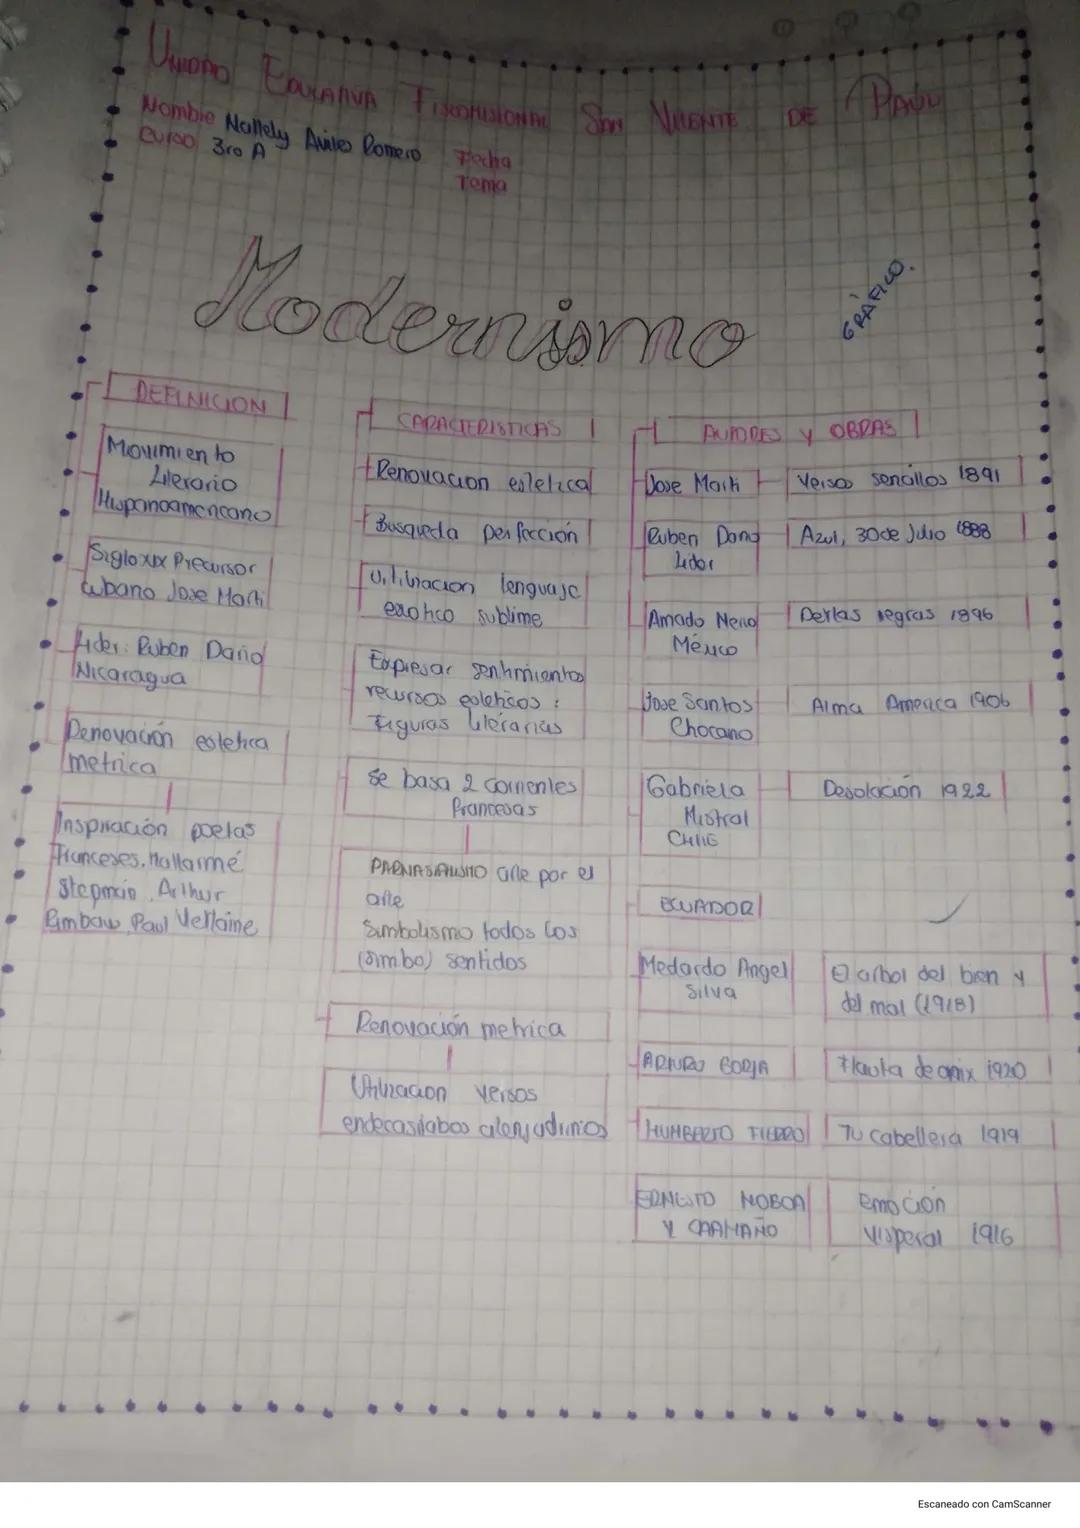 UNIDAD EDUCATIVA FISCOMISIONAL SAN VICENTE DE PAÚL
Nombre Nallely Aviles Romero Fecha
Curso 3ro A Tema
Modernismo
GRÁFICO.
DEFINICION
Movimiento
Literario
Hispanoamericano
Siglo XIX Precursor
Cubano Jose Marti
Lider: Ruben Dario
Nicaragua
Renovación estetica
metrica
Inspiración poetas
Franceses. Mallarmé
Stepman, Arthur
Rimbaw, Paul Verlaine
CARACTERISTICAS
Renovacion estetica
Busqueda perfección
Utilizacion lenguaje
exotico sublime
Expresar sentimientos
recursos esteticos :
Figuras literarias
Se basa 2 corrientes
francesas
PARNASIANISMO arte por el
arte
Simbolismo todos los
(simbo) sentidos
Renovación metrica
Utilizacion versos
endecasilabos alenjadrinos
AUTORES Y OBRAS
Jose Marti Versos sencillos 1891
Ruben Dario Azul, 30 de Julio 1888
Lider
Amado Nervo Perlas negras 1896
México
Jose Santos Alma America 1906
Chocano
Gabriela Desolación 1922
Mistral
CHILE
ECUADOR
Medardo Angel El arbol del bien y
Silva del mal (1918)
ARTURO BORJA Flauta de onix 1920
HUMBERTO FIERRO Tu cabellera 1919
ERNESTO NOBOA emoción
Y CAAMAÑO Visperal 1916
Escaneado con CamScanner